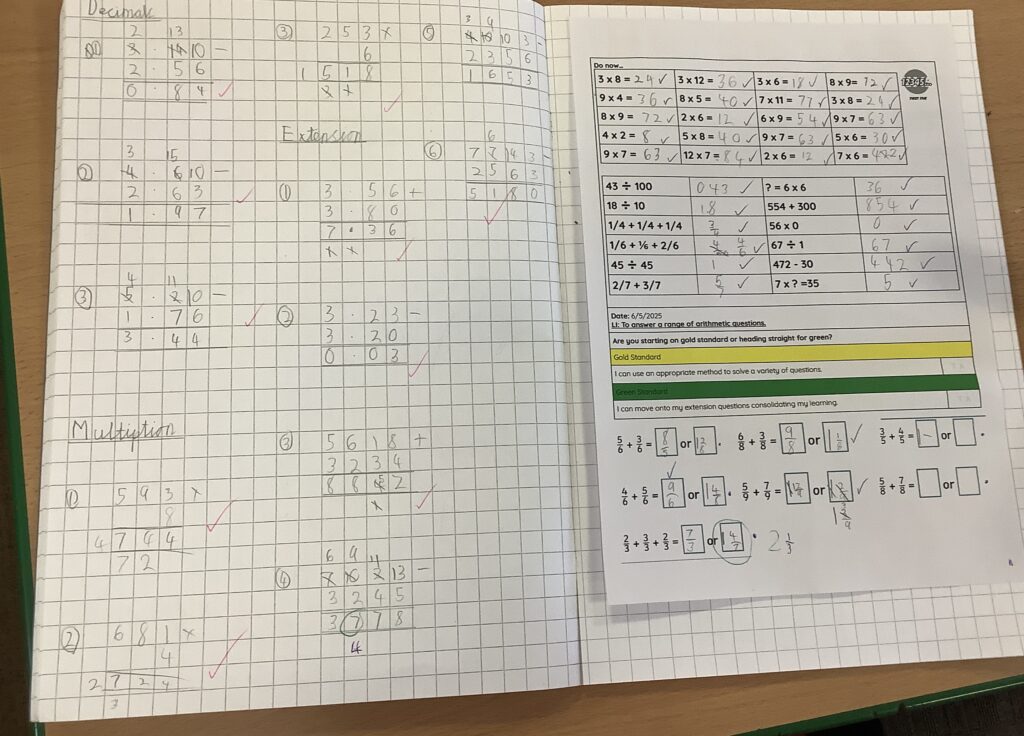 Decimals
2 13
3 . 14 10 -
2 . 56
0 . 84
3 15
② 4 . 6 10 -
2 . 63
1 . 97
4 11
③ 5 . 2 10 -
1 . 76
3 . 44
Multiption
① 593 x
8
4744
72
② 681 x
4
2724
3
③ 253 x
6
1518
Extension
① 3 . 56 +
3 . 80
7 . 36
② 3 . 23 -
3 . 20
0 . 03
③ 5618 +
3234
8852
6 9 11
④ 7 10 2 13 -
3245
3778
4
3 9
⑤ 4 10 10 3 -
2356
1653
6
⑥ 7 7 14 3 -
2563
5180
Do now...
3 x 8 = 24 3 x 12 = 36 3 x 6 = 18 8 x 9= 72
9 x 4 = 36 8 x 5 = 40 7 x 11 = 77 3 x 8 = 24
8 x 9 = 72 2 x 6 = 12 6 x 9 = 54 9 x 7 = 63
4 x 2 = 8 5 x 8 = 40 9 x 7 = 63 5 x 6 = 30
9 x 7 = 63 12 x 7 = 84 2 x 6 = 12 7 x 6 = 42
12345
43 ÷ 100 043 ? = 6 x 6 36
18 ÷ 10 18 554 + 300 854
1/4 + 1/4 + 1/4 3/4 56 x 0 0
1/6 + ⅙ + 2/6 4/6 67 ÷ 1 67
45 ÷ 45 1 472 - 30 442
2/7 + 3/7 5/7 7 x ? =35 5
Date: 6/5/2025
LI: To answer a range of arithmetic questions.
Are you starting on gold standard or heading straight for green?
Gold Standard
I can use an appropriate method to solve a variety of questions.
Green Standard
I can move onto my extension questions consolidating my learning.
5/6 + 3/6 = 8/5 or 6/8 + 3/8 = 9/8 or 1 1/8 3/5 + 4/5 = or
4/6 + 5/6 = 9/6 or 5/9 + 7/9 = or 1 3/9 5/8 + 7/8 = or
2/3 + 3/3 + 2/3 = 7/3 or 1 4/7 2 1/3